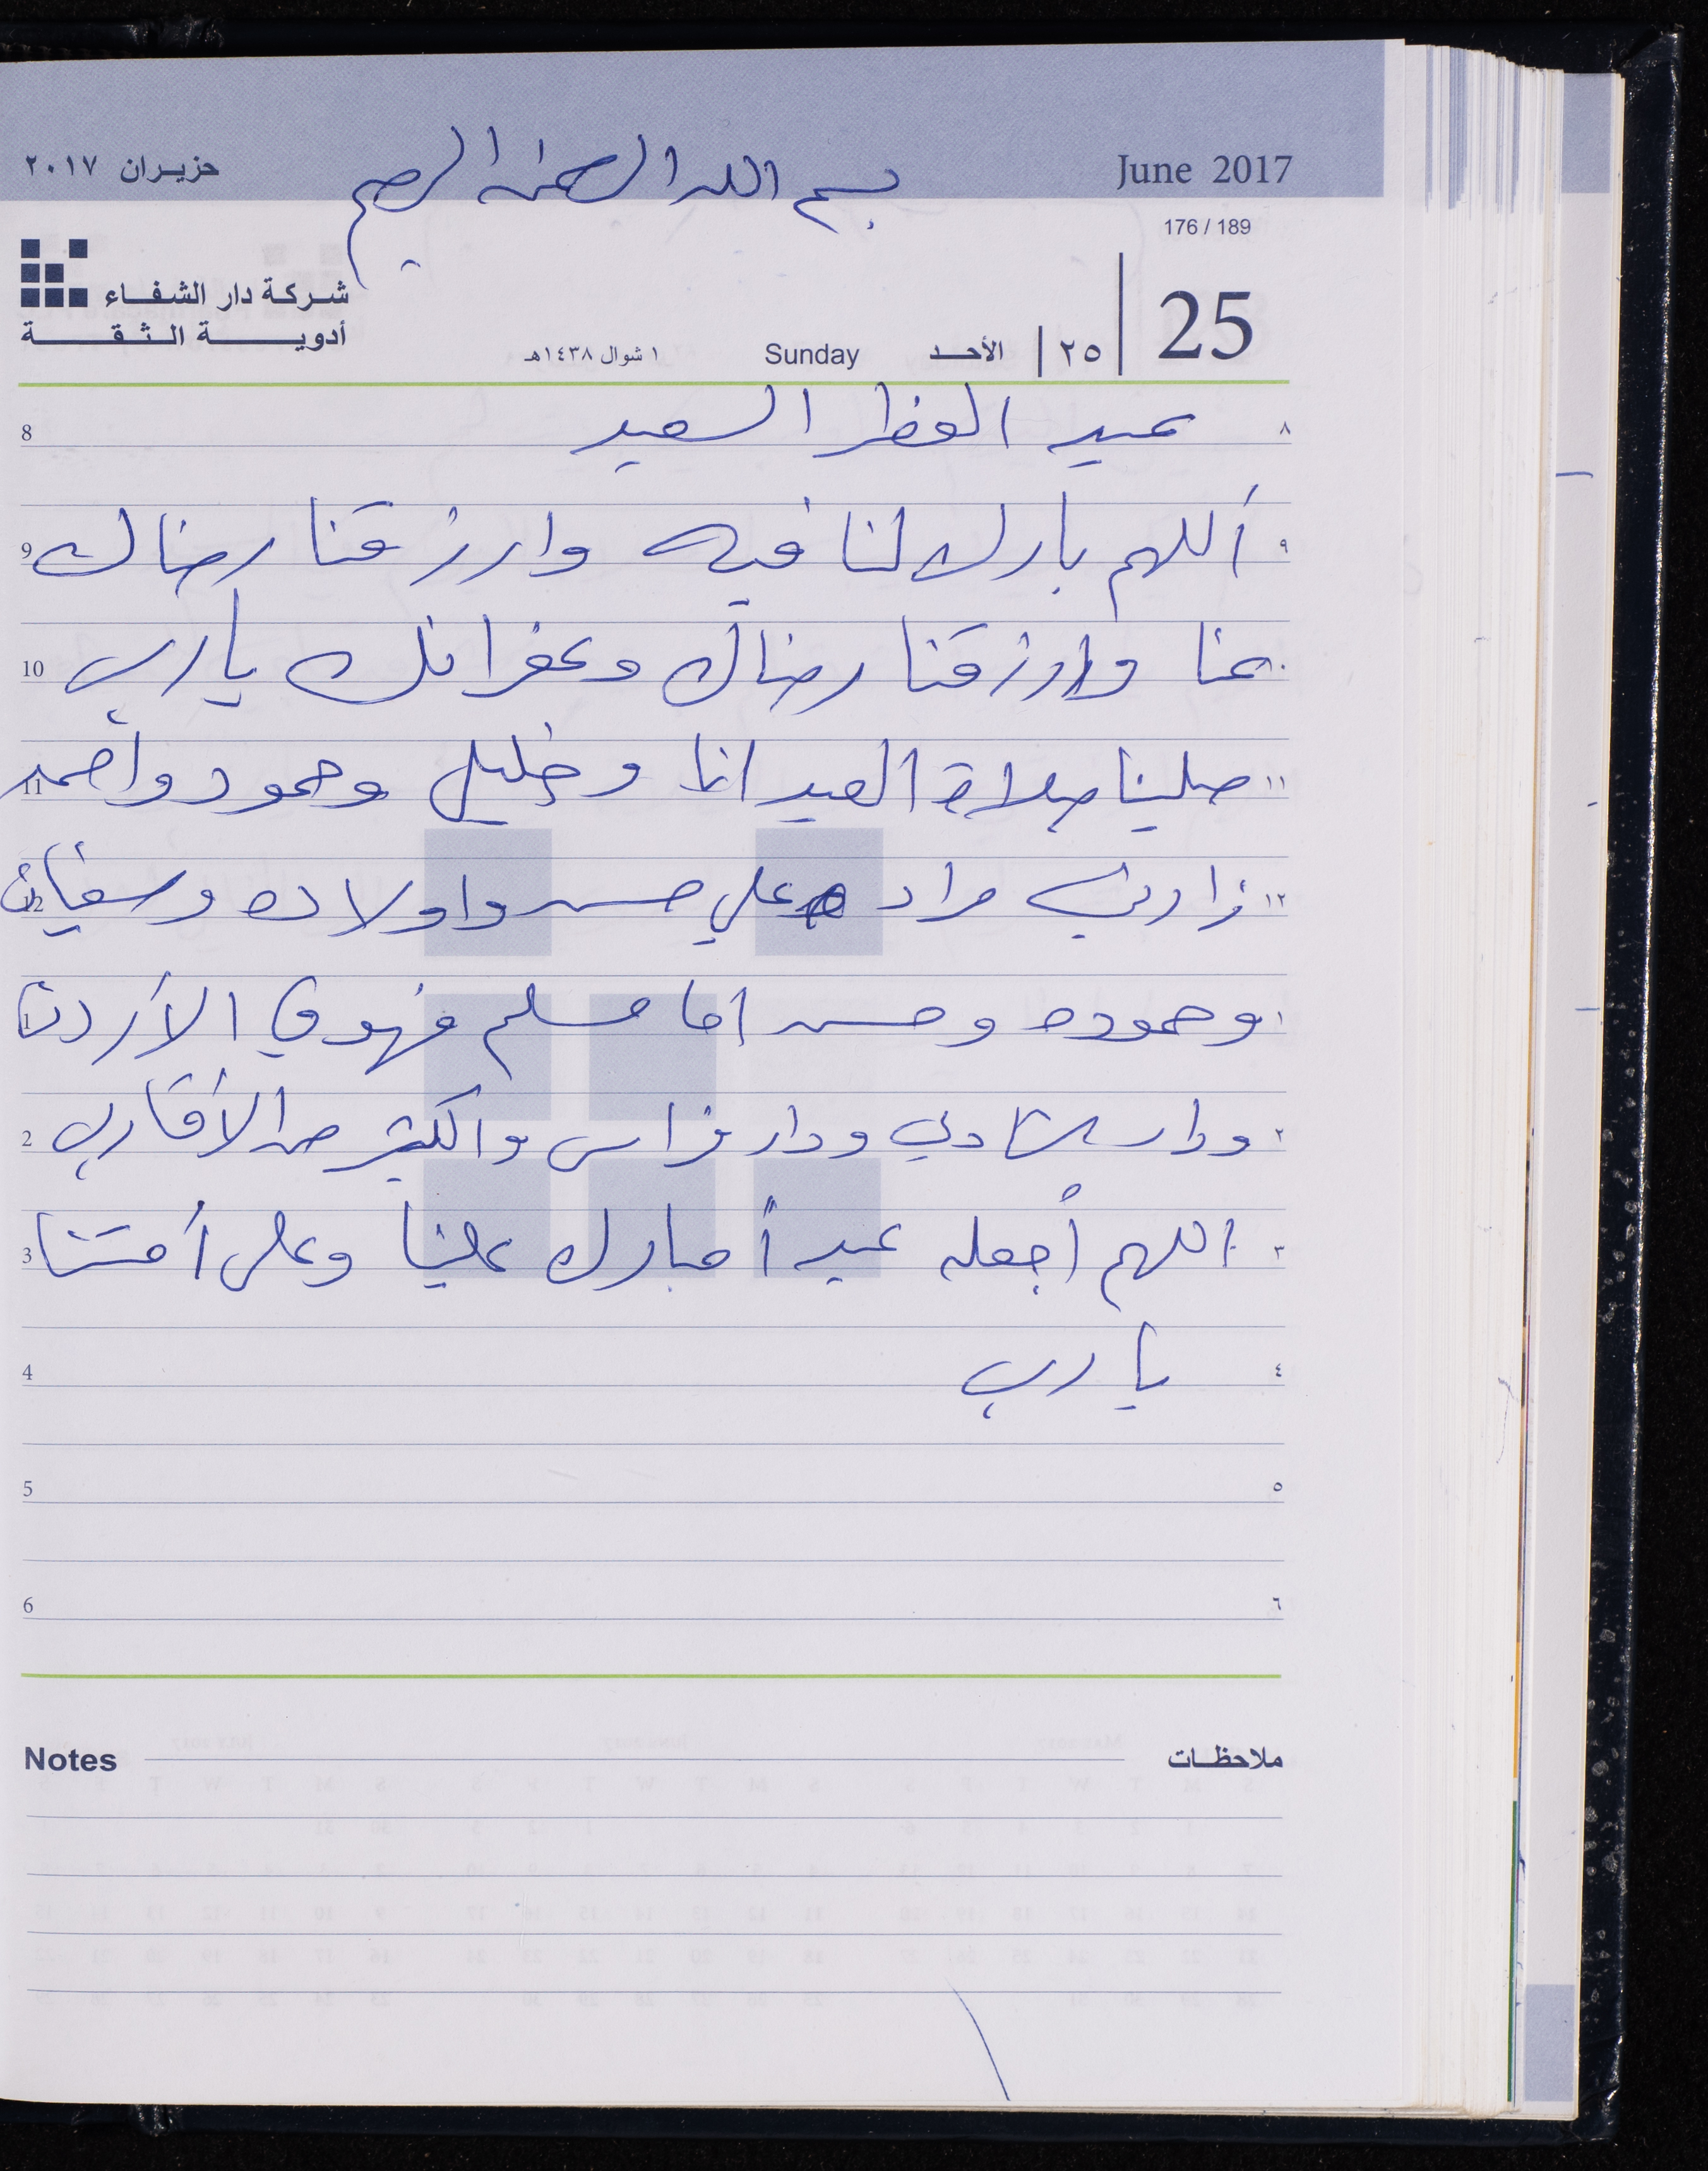 بسم الله الرحمن الرحيم
June 2017
حزيران ٢٠١٧
176 / 189
25
٢٥ الأحد Sunday ١ شوال ١٤٣٨هـ
شركة دار الشفاء
أدوية الثقة
8 عيد الفطر السعيد ٨
9 أللهم بارك لنا فيه وارزقنا رضاك ٩
10 عنا وارزقنا رضاك وغفرانك يا رب
11 صلينا صلاة العيد انا وخليل وحمود وأحمد ١١
12 زارني مراد علي حسن واولاده وسفيان ١٢
1 وحموده وحسن اما مسلم فهو في الأردن ١
2 ودار شادي ودار فراس والكثير من الأقارب ٢
3 اللهم أجعله عيد أ مبارك علينا وعلى أمتنا ٣
4 يا رب ٤
5 ٥
6 ٦
Notes ملاحظات